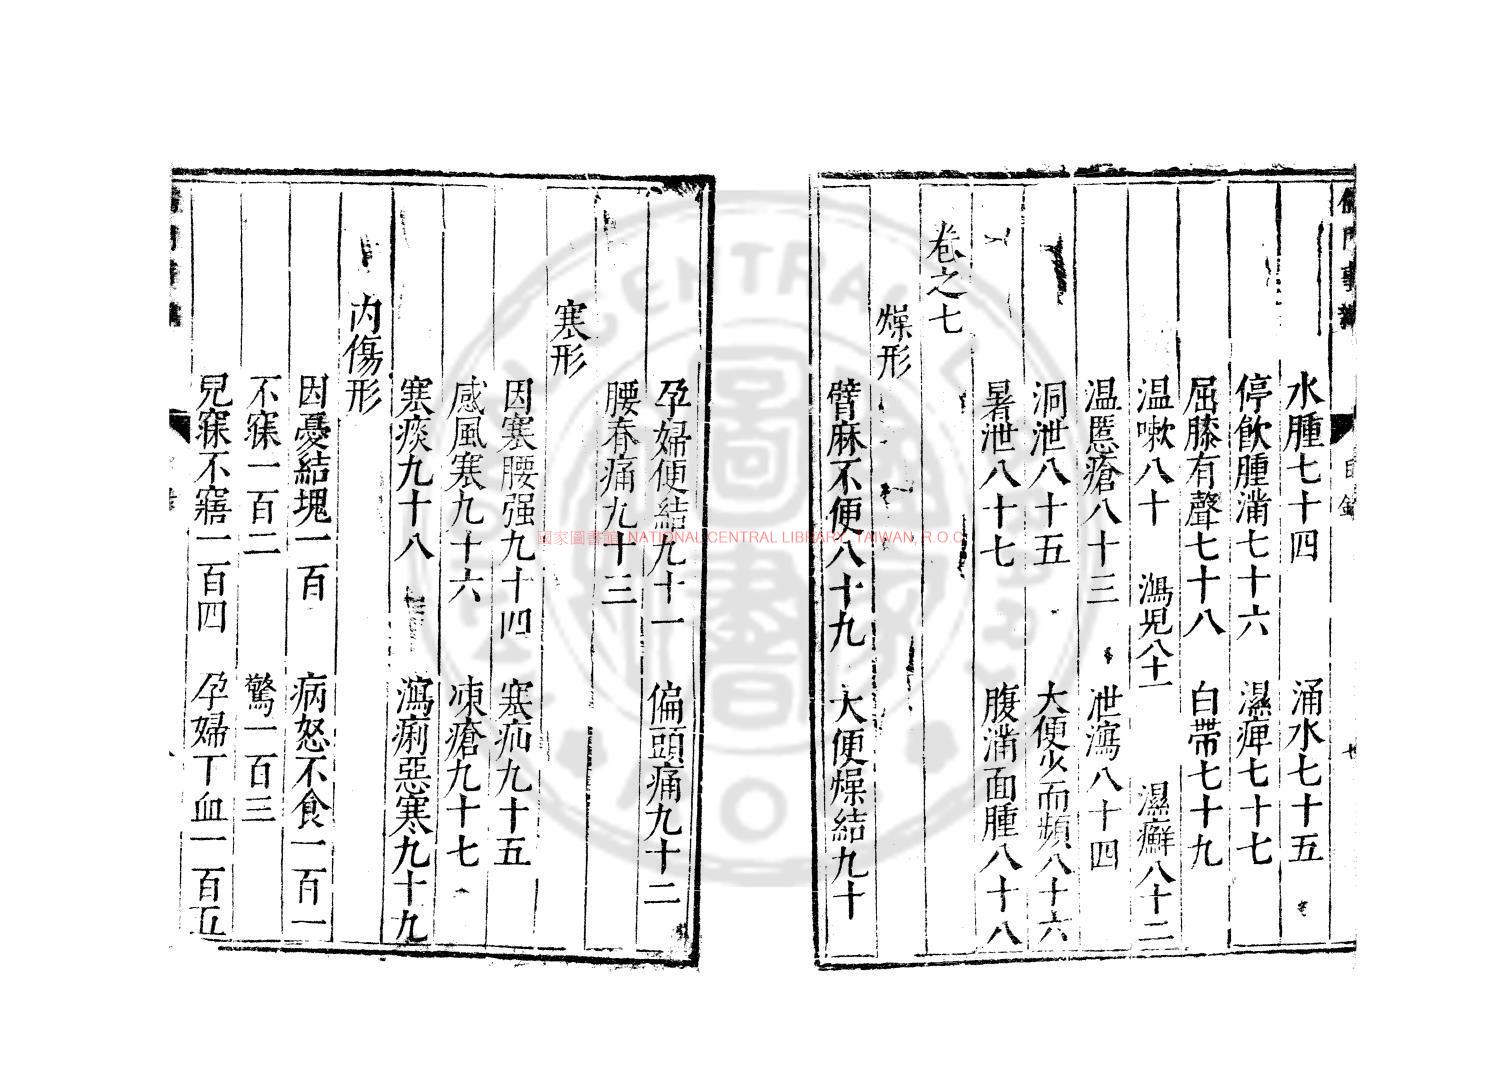 儒門事親
水腫七十四　涌水七十五
停飲腫滿七十六　濕痺七十七
屈膝有聲七十八　白帶七十九
温嗽八十　瀉兒八十一　濕癬八十二
温𤸷瘡八十三　泄瀉八十四
洞泄八十五　大便少而頻八十六
暑泄八十七　腹滿面腫八十八
卷之七
燥形
臂麻不便八十九　大便燥結九十
孕婦便結九十一　偏頭痛九十二
腰脊痛九十三
寒形
因寒腰强九十四　寒疝九十五
感風寒九十六　凍瘡九十七
寒痰九十八　瀉痢惡寒九十九
内傷形
因憂結塊一百　病怒不食一百一
不寐一百二　驚一百三
兒寐不寤一百四　孕婦下血一百五
國家圖書館 NATIONAL CENTRAL LIBRARY, TAIWAN, R.O.C.